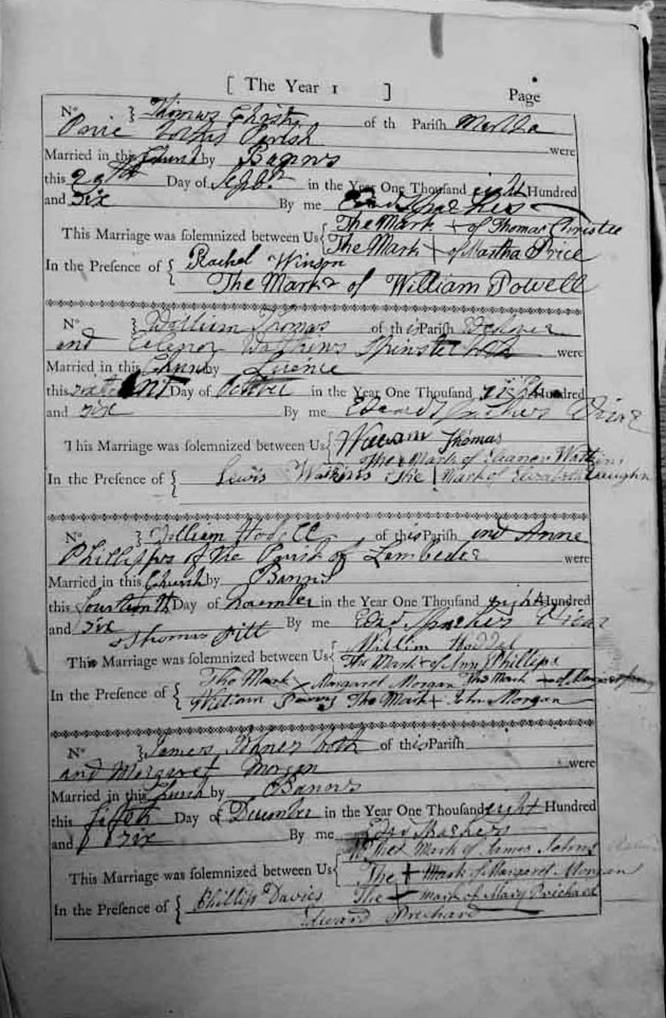 [ The Year 1 ] Page
No } Thomas Christ of th Parish Martha
Price both Parish were
Married in this Church by Banns
this 29th Day of Sepbr in the Year One Thousand eight Hundred
and Six By me
This Marriage was solemnized between Us { The Mark + of Thomas Christie
The Mark + of Martha Price
In the Presence of { Rachel Winson
The Mark of William Powell
No } William Thomas of this Parish
and Elenor Watkins Spinster both were
Married in this Church by Licence
this Day of October in the Year One Thousand eight Hundred
and six By me Edward Vicar
This Marriage was solemnized between Us { William Thomas
The Mark of Eleanor Watkins
In the Presence of { Lewis Watkins The Mark of Elizabeth Vaughn
No } William of this Parish and Anne
Phillips of the Parish of were
Married in this Church by Banns
this fourteenth Day of November in the Year One Thousand eight Hundred
and six By me Edwd Vicar
Thomas Pitt
This Marriage was solemnized between Us { William
The Mark of Ann Phillips
In the Presence of { The Mark × Margaret Morgan The Mark + of
William The Mark + John Morgan
No } James both of this Parish
and Margaret Morgan were
Married in this Church by Banns
this fifth Day of December in the Year One Thousand eight Hundred
and six By me Edw
The Mark of James Johns
This Marriage was solemnized between Us { The + Mark of Margaret Morgan
In the Presence of { Phillip Davies The mark of Mary Prichard
Edward Prichard